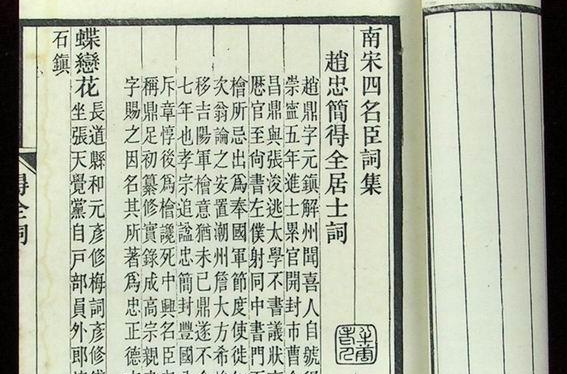 南宋四名臣詞集
趙忠簡得全居士詞
趙鼎字元鎮解州聞喜人自號得
崇寧五年進士累官開封市曹
昌鼎與張浚逃太學不書議狀
歷官至尙書左僕射同中書門
檜所忌出爲奉國軍節度使徙
次翁論之安置潮州詹大方希
移吉陽軍檜意猶未已鼎遂不
七年也孝宗追諡忠簡封豐國
斥章惇後爲檜讒死中興名臣
稱鼎足初纂修實錄成高宗親
字賜之因名其所著爲忠正德
蝶戀花
長道縣和元彥修梅詞彥修
坐張天覺黨自戸部員外郎
石鎮
得全詞